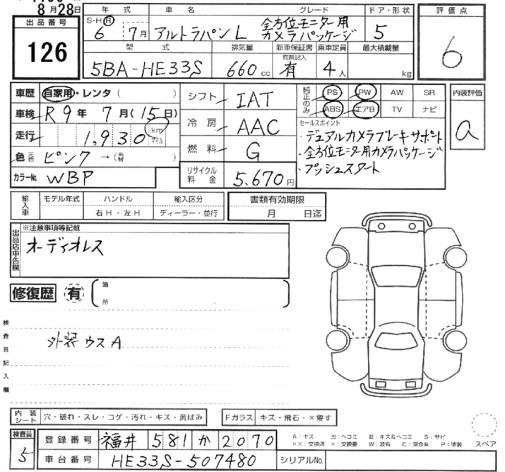 8月28日
出品番号
126
年式 車名 グレード ドア・形状 評価点
S・H・R
6年 7月 アルトラパン L 全方位モニター用カメラパッケージ 5 6
型式 排気量 新車保証書 乗車定員 最大積載量
有償記入
5BA-HE33S 660cc 有 4人 kg
車歴 自家用・レンタ( )
車検 R9年 7月(15日)
走行 1,930 km
色 ピンク →(有)
カラーNo. WBP
シフト IAT
冷房 AAC
燃料 G
リサイクル料金 5,670円
純正のみ
PS PW AW SR
ABS エアB TV ナビ
セールスポイント
・デュアルカメラブレーキサポート
・全方位モニター用カメラパッケージ
・プッシュスタート
内装評価
a
輸入車 モデル年式 ハンドル 輸入区分 書類有効期限
右H・左H ディーラー・並行 月 日迄
出品店申告欄
※注意事項等記載
オーディオレス
修復歴 有 箇所
検査員記入欄
外装 ウスA
内装シート 穴・破れ・スレ・コゲ・汚れ・キズ・黄ばみ Fガラス キズ・飛石・×要す
検査員
5
登録番号 福井 581 か 2070
車台番号 HE33S-507480 シリアルNo.
スペア